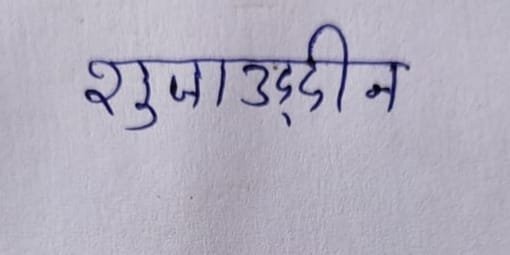 शुजाउद्दीन